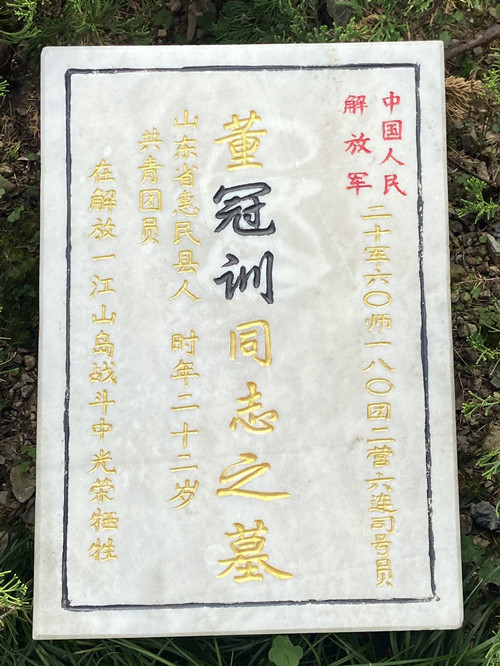 中国人民
解放军
二十军六〇师一八〇团二营六连司号员
董冠训同志之墓
山东省惠民县人 时年二十二岁
共青团员
在解放一江山岛战斗中光荣牺牲